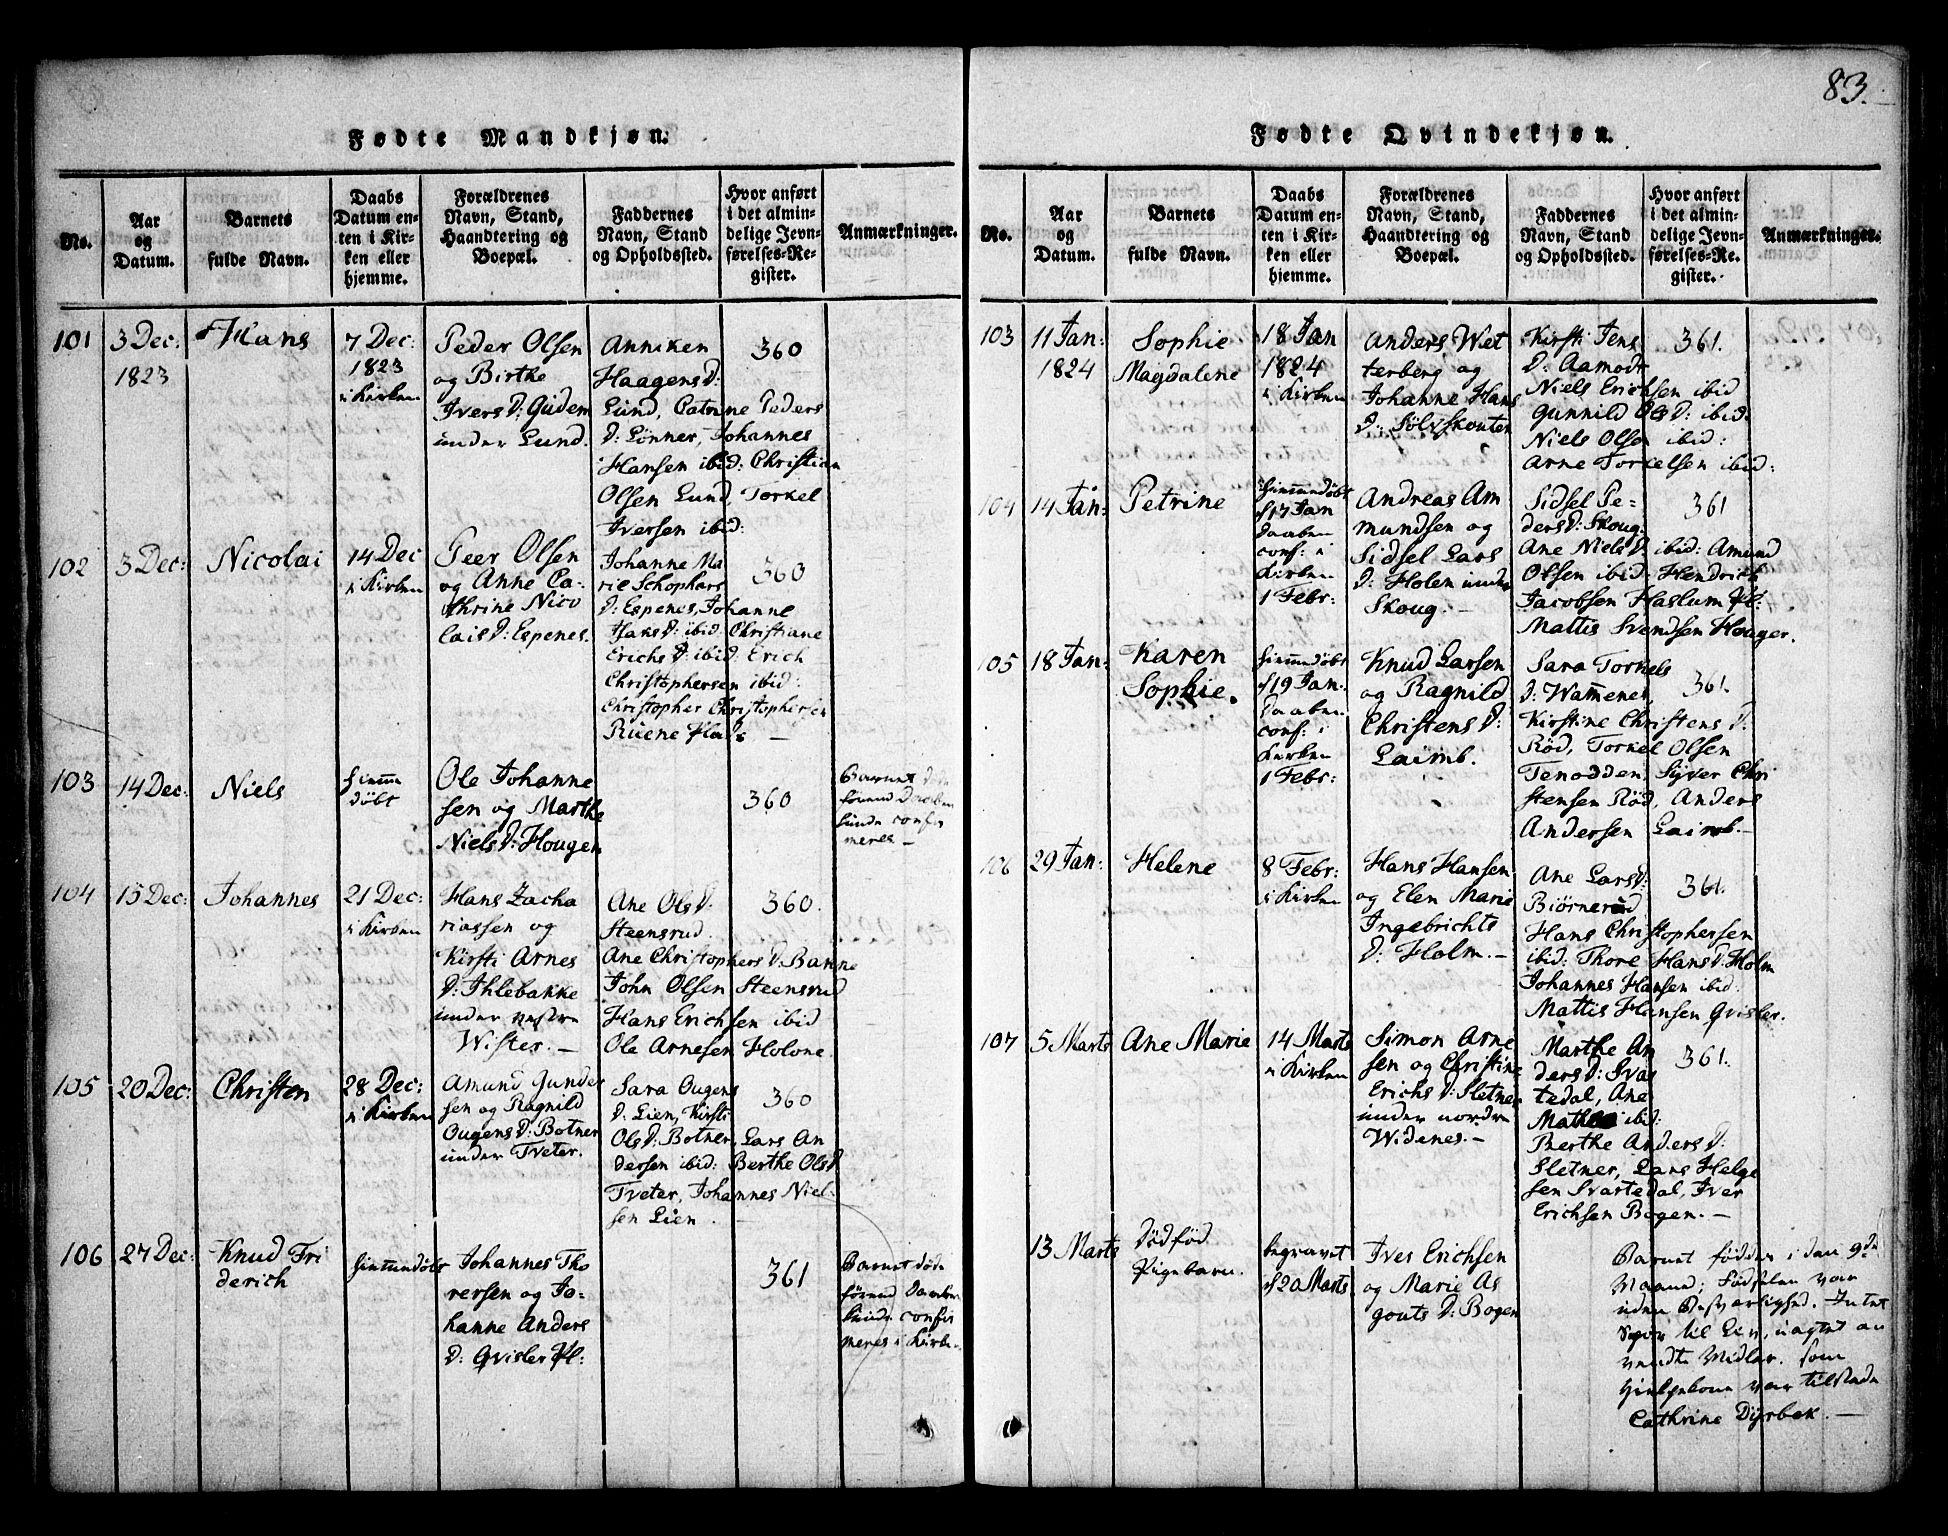 83.
Fødte Mandkjøn.
No.
Aar
og
Datum.
Barnets
fulde Navn.
Daabs
Datum en-
ten i Kir-
ken eller
hjemme.
Forældrenes
Navn, Stand,
Haandtering og
Boepæl.
Faddernes
Navn, Stand
og Opholdssted.
Hvor anført
i det almin-
delige Jevn-
førelses-Re-
gister.
Anmærkninger.
101
3 Dec:
1823
Hans
7 Dec:
1823
i Kirken
Peder Olsen
og Birthe
Ivers D: Gudem
under Lund.
Anniken
Haagens D:
Lund, Catrine Peders
D: Lønner, Johannes
Hansen ibid: Christian
Olsen Lund, Torkel
Iversen ibid:
360
102
3 Dec:
Nicolai
14 Dec
i Kirken
Peer Olsen
og Anne Ca-
thrine Nico
lais D: Espenes.
Johanne Ma
rie Schophars
D: Espenes, Johanne
Hans D: ibid: Christiane
Erichs D: ibid: Erich
Christophersen ibid:
Christopher Christophersen
Ruene Hals
360
103
14 Dec:
Niels
hjemme
døbt
Ole Johanne
sen og Marthe
Niels D: Hougen
360
Barnet døde
førend Daaben
kunde confir
meres
104
15 Dec:
Johannes
21 Dec:
i Kirken
Hans Zacha
riassen og
Kirsti Arnes
D: Ihlebakke
under vestre
Wister.
Ane Ols D:
Steensrud.
Ane Christophers D: Banne
John Olsen Steensrud
Hans Erichsen ibid
Ole Arnesen Holone
360.
105
20 Dec:
Christen
28 Dec:
i Kirken
Amund Gunder
sen og Ragnild
Ougens D: Botner
under Tveter.
Sara Ougens
D: Lien, Kirsti
Ols D: Botner, Lars An
dersen ibid: Berthe Ols D
Tveter, Johannes Niel-
sen Lien.
360
106
27 Dec:
Knud Fri
derich
hjemmedøbt
Johannes Tho
rersen og Jo-
hanne Anders
D: Qvisler Pl:
361
Barnet døde
førend Daaben
kunde confir
meres i Kirken
Fødte Qvindekjøn.
No.
Aar
og
Datum.
Barnets
fulde Navn.
Daabs
Datum en-
ten i Kir-
ken eller
hjemme.
Forældrenes
Navn, Stand,
Haandtering og
Boepæl.
Faddernes
Navn, Stand
og Opholdssted.
Hvor anført
i det almin-
delige Jevn-
førelses-Re-
gister.
Anmærkninger.
103
11 Jan:
1824
Sophie
Magdalene
18 Jan
1824
i Kirken
Anders Wet
terberg og
Johanne Hans
D: Sølvskouten
Kirsti Jens
D: Aamodt
Niels Erichsen ibid
Gunnild Ols D: ibid:
Niels Olsen ibid:
Arne Torkelsen ibid:
361.
104
14 Jan:
Petrine
hjemmedøbt
d 17 Jan
Daaben
conf: i
Kirken
1 Febr:
Andreas Am
mundsen og
Sidsel Lars
D: Holen under
Skoug.
Sidsel Pe-
ders D: Skoug.
Ane Niels D. ibid: Amund
Olsen ibid: Hendrich
Jacobsen Haslum Pl:
Mattis Svendsen Houger.
361
105
18 Jan:
Karen
Sophie.
hjemmedøbt
d 19 Jan.
Daaben
conf: i
Kirken
1 Febr:
Knud Larsen
og Ragnild
Christens D:
Laimb.
Sara Torkels
D: Wamenes,
Kirstine Christens D:
Rød, Torkel Olsen
Tenodden, Syver Chri
stensen Rød, Anders
Andersen Laimb.
361.
106
29 Jan:
Helene
8 Febr:
i Kirken
Hans Hansen
og Elen Marie
Ingebrichts
D: Holm.
Ane Lars D:
Biørnerud
Hans Christophersen
ibid: Thore Hans D: Holm
Johannes Hansen ibid:
Mattis Hansen Qvisler.
361.
107
5 Marts
Ane Marie
14 Marts
i Kirken
Simon Arne
sen og Christine
Erichs D: Sletner
under nordre
Widenes.
Marthe An
ders D: Svar
tedal, Ane
ibid:
Berthe Anders D:
Sletner, Lars Helge
sen Svartedal, Iver
Erichsen Bogen.
361.
13 Marts
Dødfød
Pigebarn.
begravet
d 20 Marts
Iver Erichsen
og Marie As
gouts D: Bogen
Barnet fødden i den 9de
Maaned; Fødselen var
uden Besværlighed. Intet
Spor til Liv, uagtet an
vendte Midler. som
Hielpekone var tilstæde
Cathrine Dyrbek.